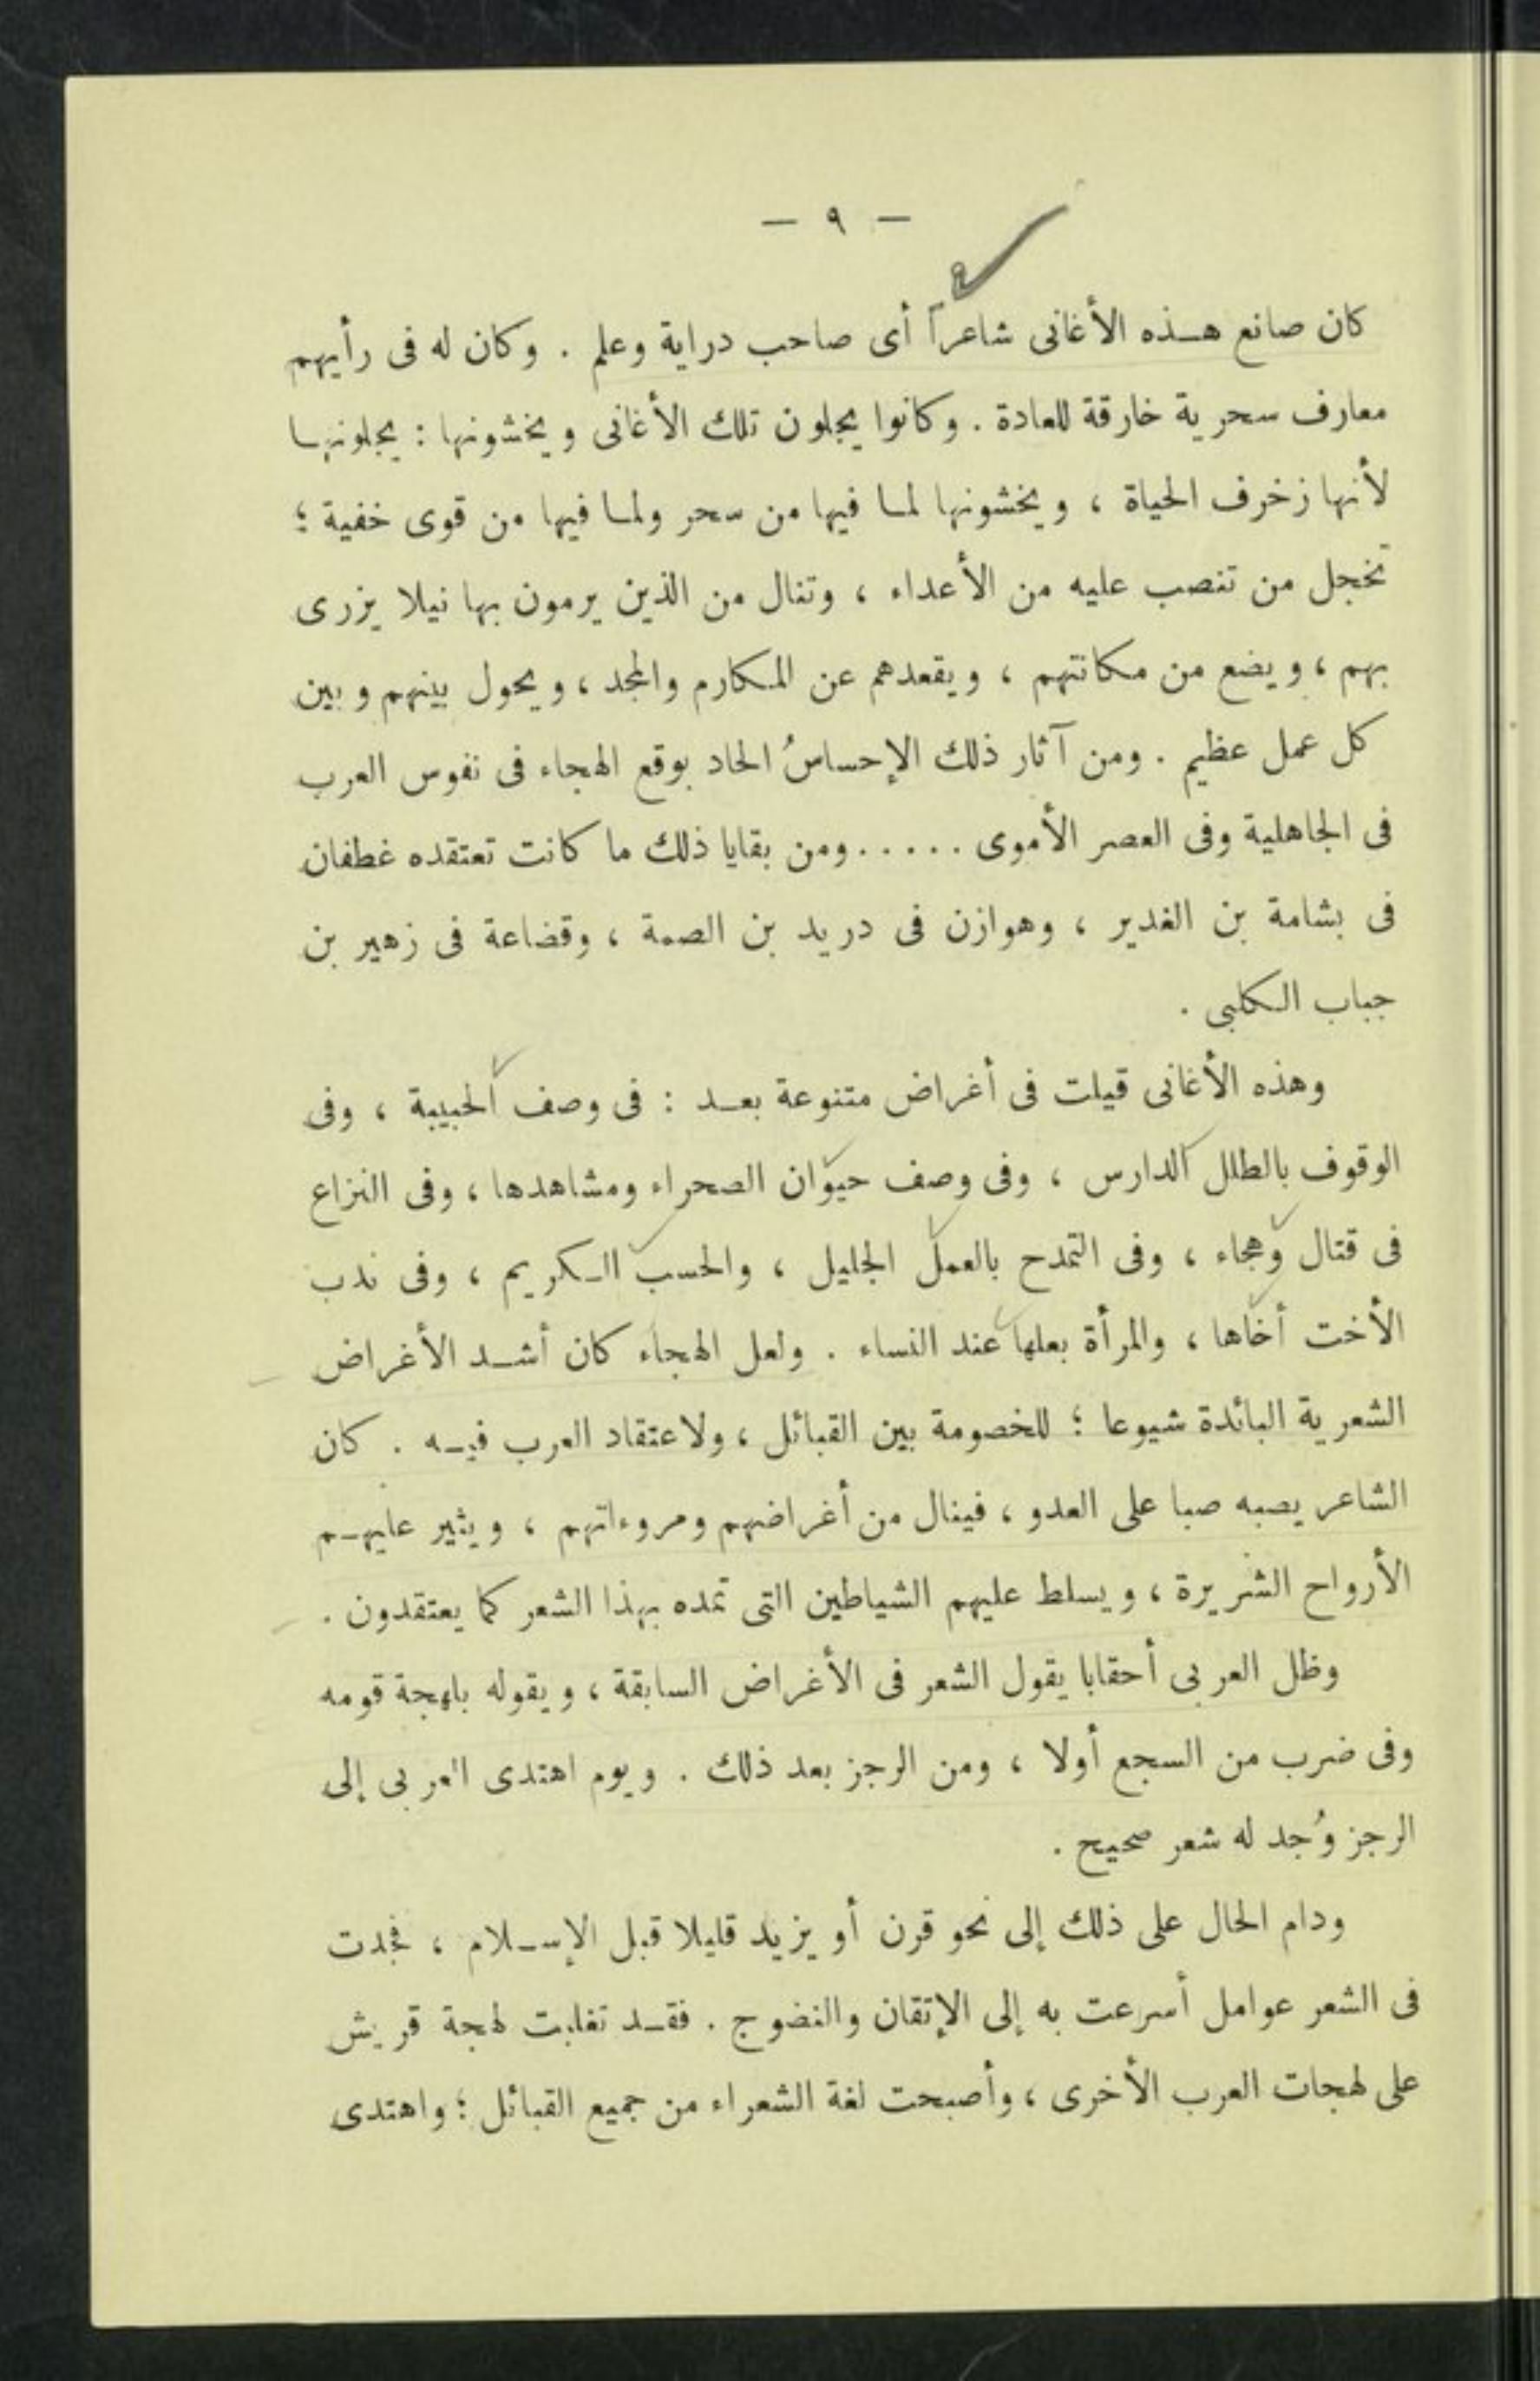 — ٩ —
كان صانع هذه الأغانى شاعراً أى صاحب دراية وعلم . وكان له فى رأيهم
معارف سحرية خارقة للعادة . وكانوا يجلون تلك الأغانى ويخشونها : يجلونها
لأنها زخرف الحياة ، ويخشونها لما فيها من سحر ولما فيها من قوى خفية ؛
تخجل من تنصب عليه من الأعداء ، وتنال من الذين يرمون بها نيلا يزرى
بهم ، ويضع من مكانتهم ، ويقعدهم عن المكارم والمجد ، ويحول بينهم وبين
كل عمل عظيم . ومن آثار ذلك الإحساسُ الحاد بوقع الهجاء فى نفوس العرب
فى الجاهلية وفى العصر الأموى ..... ومن بقايا ذلك ما كانت تعتقده غطفان
فى بشامة بن الغدير ، وهوازن فى دريد بن الصمة ، وقضاعة فى زهير بن
جباب الكلبى .
وهذه الأغانى قيلت فى أغراض متنوعة بعد : فى وصف الحبيبة ، وفى
الوقوف بالطلل الدارس ، وفى وصف حيوان الصحراء ومشاهدها ، وفى النزاع
فى قتال وهجاء ، وفى التمدح بالعمل الجليل ، والحسب الكريم ، وفى ندب
الأخت أخاها ، والمرأة بعلها عند النساء . ولعل الهجاء كان أشد الأغراض
الشعرية البائدة شيوعا ؛ للخصومة بين القبائل ، ولاعتقاد العرب فيه . كان
الشاعر يصبه صبا على العدو ، فينال من أغراضهم ومروءاتهم ، ويثير عليهم
الأرواح الشريرة ، ويسلط عليهم الشياطين التى تمده بهذا الشعر كما يعتقدون .
وظل العربى أحقابا يقول الشعر فى الأغراض السابقة ، ويقوله بلهجة قومه
وفى ضرب من السجع أولا ، ومن الرجز بعد ذلك . ويوم اهتدى العربى إلى
الرجز وُجد له شعر صحيح .
ودام الحال على ذلك إلى نحو قرن أو يزيد قليلا قبل الإسلام ، فجدت
فى الشعر عوامل أسرعت به إلى الإتقان والنضوج . فقد تغلبت لهجة قريش
على لهجات العرب الأخرى ، وأصبحت لغة الشعراء من جميع القبائل ؛ واهتدى